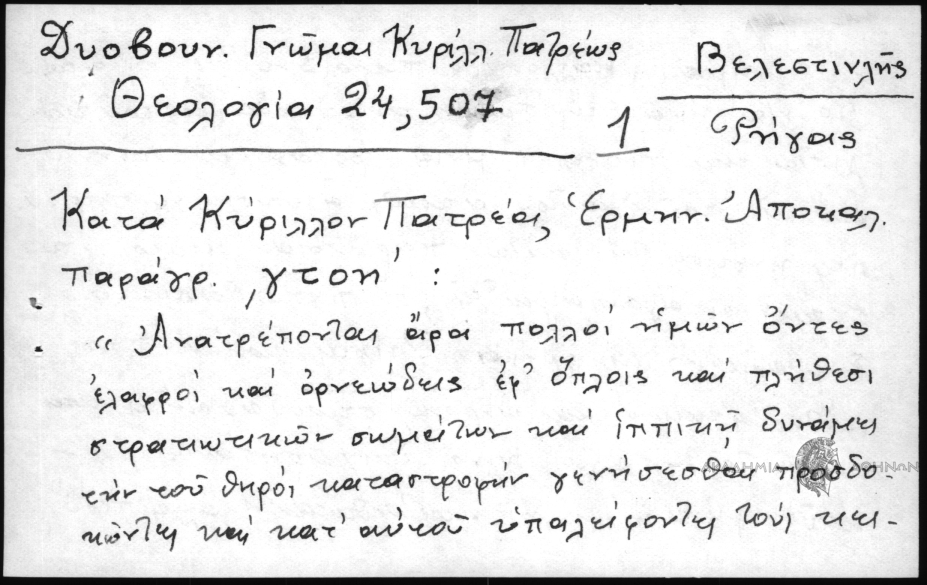 Δυοβουν. Γνῶμαι Κυρίλλ. Πατρέως
Θεολογία 24,507
1
Βελεστινλῆς
Ρήγας
Κατά Κύριλλον Πατρέα, Ἑρμην. Ἀποκαλ.
παράγρ. ͵γτοη' :
« Ἀνατρέπονται ἄρα πολλοί ἡμῶν ὄντες
ἐλαφροί καί ὀρνεώδεις ἐφ' ὅπλοις καί πλήθεσι
στρατιωτικῶν σωμάτων καί ἱππικῇ δυνάμει
τήν τοῦ θηρός καταστροφήν γενήσεσθαι προσδο-
κῶντες καί κατ' αὐτοῦ ὑπαλείφοντες τούς κει-